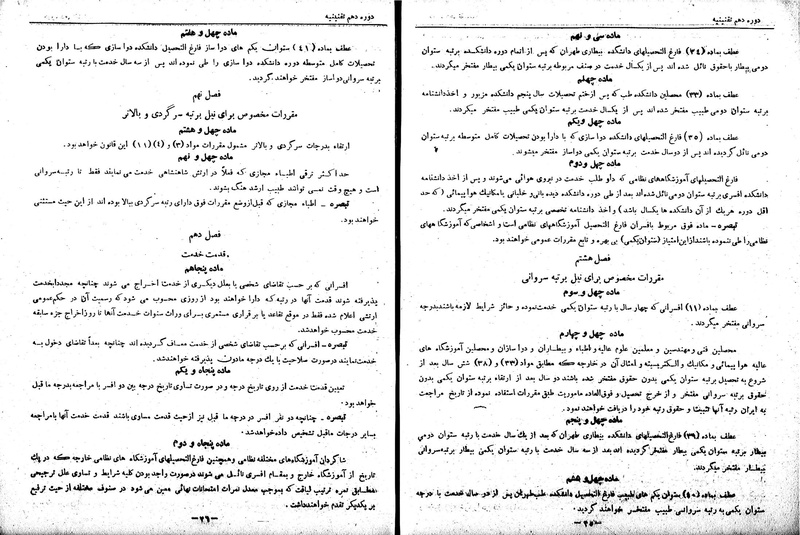 دوره دهم تقنینیه
ماده سی و نهم
عطف بماده (۳۴) فارغ التحصیلهای دانشکده بیطاری طهران که پس از اتمام دوره دانشکده برتبه ستوان
دومی بیطار با حقوق نائل شده اند پس از یکسال خدمت در صنف مربوطه برتبه ستوان یکمی بیطار مفتخر میگردند.
ماده چهلم
عطف بماده (۳۳) محصلین دانشکده طب که پس از ختم تحصیلات سال پنجم دانشکده مزبور و اخذ دانشنامه
برتبه ستوان دومی طبیب مفتخر شده اند پس از یکسال خدمت برتبه ستوان یکمی طبیب مفتخر میگردند.
ماده چهل و یکم
عطف بماده (۳۵) فارغ التحصیلهای دانشکده دواسازی که با دارا بودن تحصیلات کامل متوسطه برتبه ستوان
دومی نائل گردیده اند پس از دو سال خدمت برتبه ستوان یکمی دواساز مفتخر میشوند.
ماده چهل و دوم
فارغ التحصیلهای آموزشگاههای نظامی که داو طلب خدمت در نیروی هوائی می‌شوند و پس از اخذ دانشنامه
دانشکده افسری برتبه ستوان دومی نائل شده اند بعد از طی دوره دانشکده دیده بانی و خلبانی یا مکانیک هواپیمائی (که حد
اقل دوره هریک از آن دانشکده ها یکسال باشد) و اخذ دانشنامه تخصصی برتبه ستوان یکمی مفتخر میگردند.
تبصره - ماده فوق مربوط بافسران فارغ التحصیل آموزشگاههای نظامی است و اشخاصی که آموزشگاههای
نظامی را طی ننموده باشند از این امتیاز (ستوان یکمی) بی بهره و تابع مقررات عمومی خواهند بود.
فصل هشتم
مقررات مخصوص برای نیل برتبه سروانی
ماده چهل و سوم
عطف بماده (۱۱) افسرانی که چهار سال با رتبه ستوان یکمی خدمت نموده و حائز شرایط لازمه باشند بدرجه
سروانی مفتخر میگردند.
ماده چهل و چهارم
محصلین فنی و مهندسین و معلمین علوم عالیه و اطباء و بیطاران و دواسازان و محصلین آموزشگاه های
عالیه هواپیمائی و مکانیک و الکتریسیته و امثال آن در خارجه که مطابق مواد (۳۳) و (۳۸) شش سال بعد از
شروع به تحصیل برتبه ستوان یکمی بدون حقوق مفتخر شده باشند دو سال بعد از ارتقاء برتبه ستوان یکمی بدون
حقوق برتبه سروانی مفتخر و از خرج تحصیل و فوق العاده ماموریت طبق مقررات استفاده نموده از تاریخ مراجعت
به ایران رتبه آنها تثبیت و حقوق رتبه خود را دریافت خواهند نمود.
ماده چهل و پنجم
عطف بماده (۳۹) فارغ التحصیلهای دانشکده بیطاری طهران که بعد از یک سال خدمت با رتبه ستوان دومی
بیطار برتبه ستوان یکمی بیطار مفتخر گردیده اند بعد از سه سال خدمت با رتبه ستوان یکمی بیطار برتبه سروانی
بیطار مفتخر میگردند.
ماده چهل و
عطف بماده (۴۰) ستوان یکم های طبیب فارغ التحصیل دانشکده طب طهران پس از دو سال خدمت با درجه
ستوان یکمی به رتبه سروانی طبیب مفتخر خواهند گردید.
-۲۵-
دوره دهم تقنینیه
ماده چهل و هفتم
عطف بماده (۴۱) ستوان یکم های دوا ساز فارغ التحصیل دانشکده دوا سازی که با دارا بودن
تحصیلات کامل متوسطه دوره دانشکده دوا سازی را طی نموده اند پس از سه سال خدمت با رتبه ستوان یکمی
برتبه سروانی دواساز مفتخر خواهند گردید.
فصل نهم
مقررات مخصوص برای نیل برتبه سرگردی و بالاتر
ماده چهل و هشتم
ارتقاء بدرجات سرگردی و بالاتر مشمول مقررات مواد (۳) و (۴) (۱۱) این قانون خواهد بود.
ماده چهل و نهم
حداکثر ترقی اطباء مجازی که فعلاً در ارتش شاهنشاهی خدمت می نمایند فقط تا رتبه سروانی
است و هیچ وقت نمی توانند طبیب ارشد هنگ بشوند.
تبصره - اطباء مجازی که قبل از وضع مقررات فوق دارای رتبه سرگردی ببالا بوده اند از این حیث مستثنی
خواهند بود.
فصل دهم
قدمت خدمت
ماده پنجاهم
افسرانی که بر حسب تقاضای شخصی یا بعلل دیگری از خدمت اخراج می شوند چنانچه مجدداً بخدمت
پذیرفته شوند قدمت آنها در رتبه که دارا خواهند بود از روزی محسوب می شود که رسمیت آن در حکم عمومی
ارتشی اعلام شده فقط در موقع تقاعد یا برقراری مستمری برای وراث سنوات خدمت آنها تا روز اخراج جزء سابقه
خدمت محسوب خواهد شد.
تبصره - افسرانی که بر حسب تقاضای شخصی از خدمت معاف گردیده اند چنانچه بعداً تقاضای دخول به
خدمت نمایند در صورت صلاحیت با یک درجه مادون پذیرفته خواهند شد.
ماده پنجاه و یکم
تعیین قدمت خدمت از روی تاریخ درجه و در صورت تساوی تاریخ درجه بین دو افسر با مراجعه بدرجه ما قبل
خواهد بود.
تبصره - چنانچه دو نفر افسر در درجه ما قبل نیز از حیث قدمت مساوی باشند قدمت خدمت آنها با مراجعه
بسایر درجات ماقبل تشخیص داده خواهد شد.
ماده پنجاه و دوم
شاگردان آموزشگاههای مختلفه نظامی و همچنین فارغ التحصیلهای آموزشگاه های نظامی خارجه که در یک
تاریخ از آموزشگاه خارج و بمقام افسری نائل می شوند در صورت واجد بودن کلیه شرایط و تساوی علل ترجیحی
مطابق نمره ترتیب لیاقت که بموجب معدل نمرات امتحانات نهائی معین می شود در صنوف مختلفه از حیث ترفیع
بر یکدیگر تقدم خواهند داشت.
-۲۶-